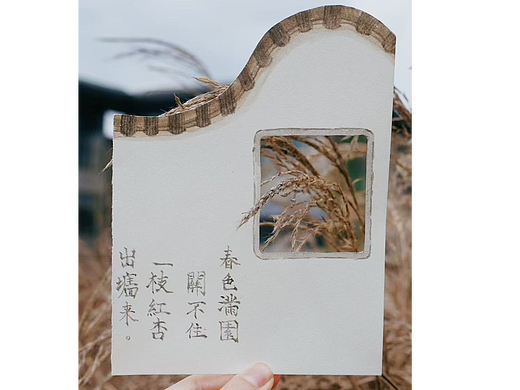 春色滿園
關不住
一枝紅杏
出墻来。